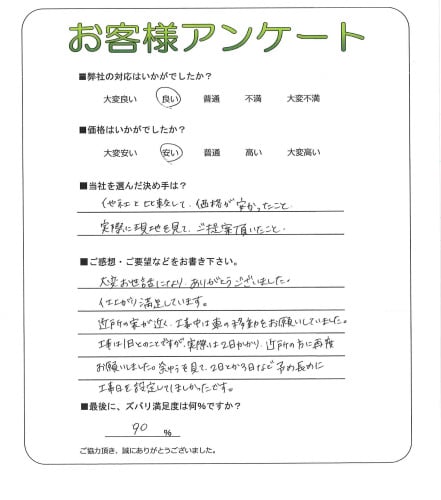 お客様アンケート
■弊社の対応はいかがでしたか？
大変良い 良い 普通 不満 大変不満
■価格はいかがでしたか？
大変安い 安い 普通 高い 大変高い
■当社を選んだ決め手は？
他社と比較して、価格が安かったこと.
実際に現地を見て、ご提案頂いたこと.
■ご感想・ご要望などをお書き下さい。
大変お世話になり、ありがとうございました。
仕上がり満足しています。
近所の家が近く、工事中は車の移動をお願いしていました。
工事は1日とのことですが、実際は2日かかり、近所の方に再度
お願いしました。余裕を見て、2日とか3日など予め長めに
工事日を設定してほしかったです。
■最後に、ズバリ満足度は何％ですか？
90 ％
ご協力頂き、誠にありがとうございました。